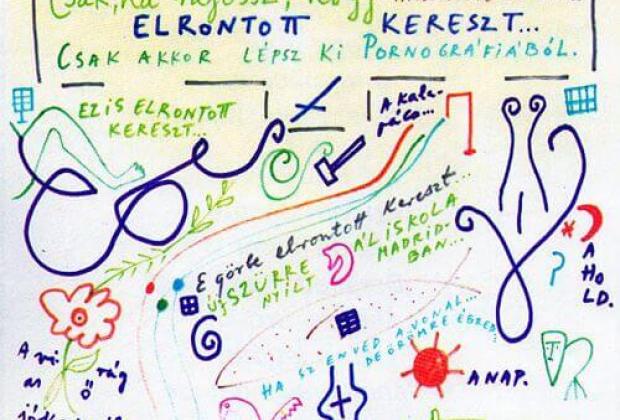 ELRONTOTT KERESZT...
CSAK AKKOR LÉPSZ KI PORNOGRÁFIÁBÓL.
EZ IS ELRONTOTT
KERESZT...
A KALA-
PÁCA...
E görbe elrontott kereszt...
ÚJ SZÜRRE
NYÍLT
ÁLISKOLA
MADRID-
BAN...
A
HO
LD.
HA SZENVED A VONAL...
DE ÖRÖMRE ÉBRED...
A NAP.
A vi rág
az ő